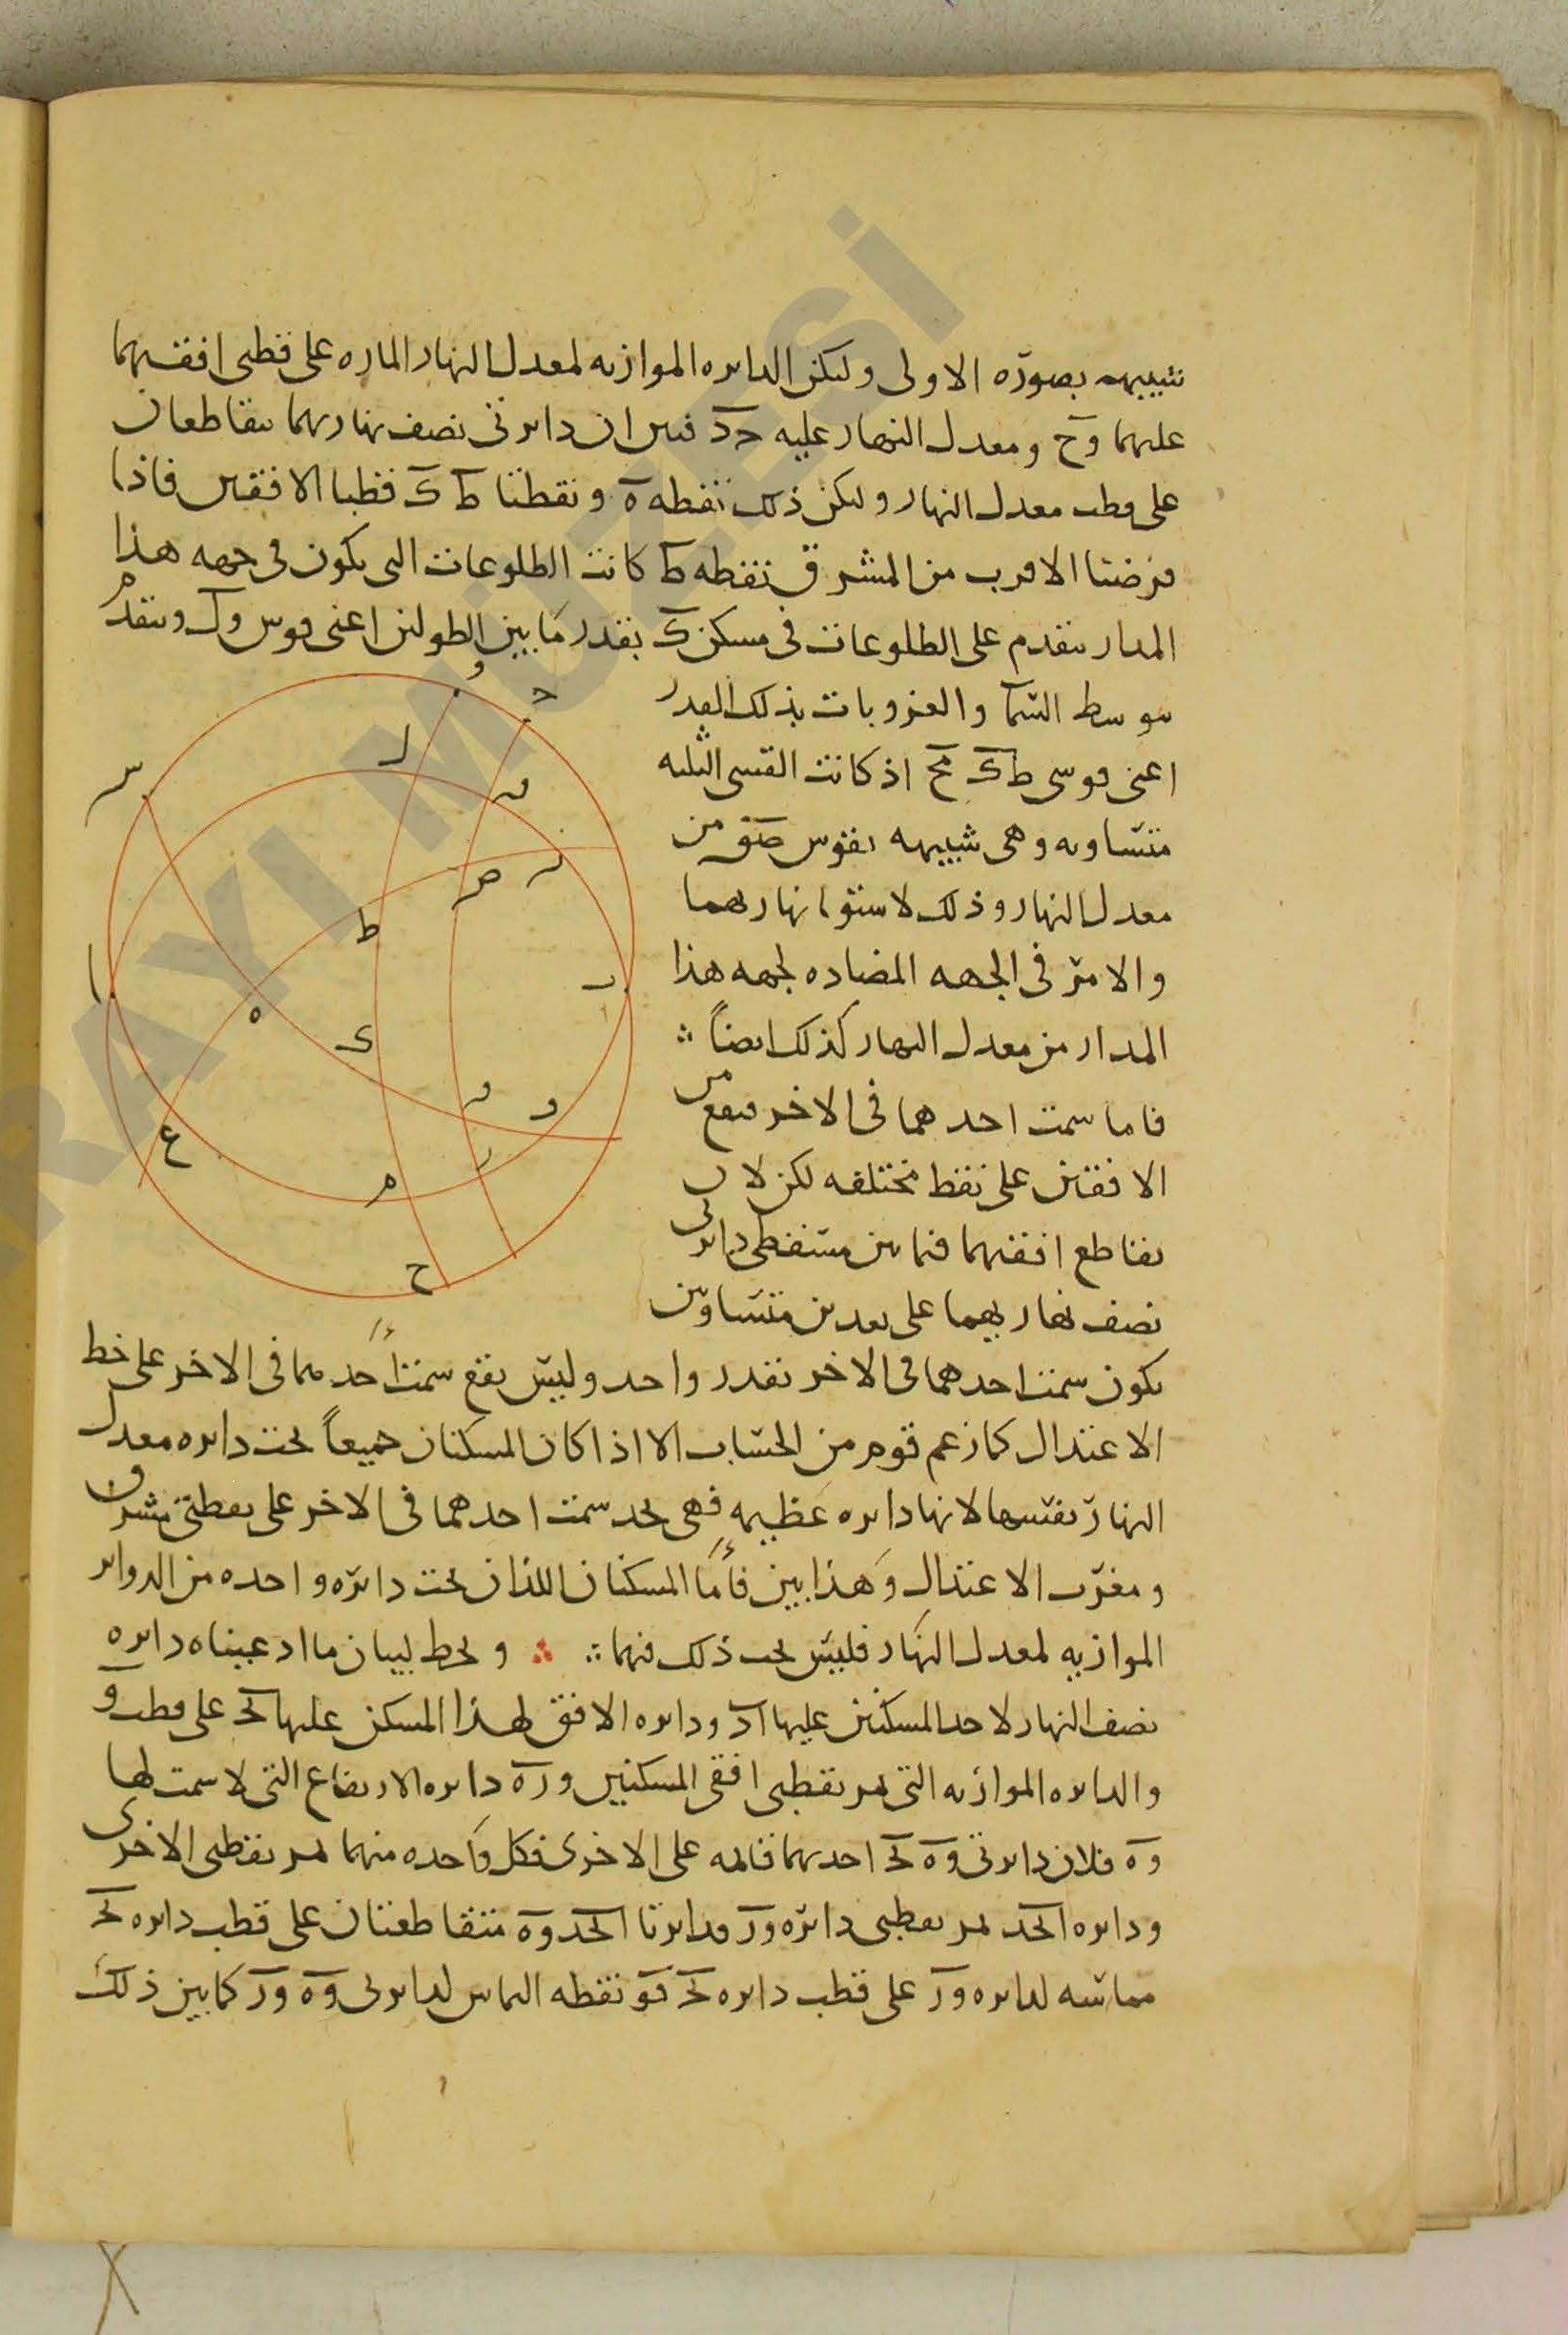 شبيهه بصورة الاولى ولىكن الدائره الموازيه لمعدل النهار الماره على قطبى افقيهما
عليهما وح ومعدل النهار عليه حد فبين ان دائرتى نصف نهاريهما يتقاطعان
على قطب معدل النهار وليكن ذلك نقطه ه ونقطتا ط ك قطبا الافقين فاذا
فرضنا الاقرب من المشرق نقطه ط كانت الطلوعات التى يكون فى جهه هذا
المدار يتقدم على الطلوعات فى مسكن ك بقدر ما بين الطولين اعنى قوس ول ويتقدم
توسط السما والغروبات بذلك القدر
اعنى قوسى طك مح اذ كانت القسى الثلثه
متساويه وهى شبيهه بقوس صق من
معدل النهار وذلك لاستوا نهاريهما
والامر فى الجهه المضاده لجهه هذا
المدار من معدل النهار كذلك ايضاً
فاما سمت احدهما فى الاخر فيقع من
الافقين على نقط مختلفه لكن لان
تقاطع افقيهما فيما بين مسقطى دائرتى
نصف نهاريهما على بعدين متساويين
يكون سمت احدهما فى الاخر بقدر واحد وليس يقع سمت احدهما فى الاخر على خط
الاعتدال كما زعم قوم من الحساب الا اذا كان المسكنان جميعاً تحت دائره معدل
النهار نفسها لانها دائره عظيمه فهى تحد سمت احدهما فى الاخر على نقطتى مشرق
ومغرب الاعتدال وهذا بين فأما المسكنان اللذان تحت دائره واحده من الدوائر
الموازيه لمعدل النهار فليس يجب ذلك فيهما ونخط لبيان ما ادعيناه دائره
نصف النهار لاحد المسكنين عليها اد ودائره الافق لهذا المسكن عليها لح على قطب و
والدائره الموازيه التى تمر بقطبى افقى المسكنين ور ه دائره الارتفاع التى لا سمت لها
وه فلان دائرتى وه لح احديهما قائمه على الاخرى فكل واحده منهما تمر بقطبى الاخرى
ودائره الحد تمر بقطبى دائره ور فدائرتا الحد وه متقاطعتان على قطب دائره لح
مماسه لدائره ور على قطب دائره لح فو نقطه التماس لدائرتى وه ور كما بين ذلك
و
ح
ل
ق
س
ن
ص
ط
ا
ب
ه
ك
د
ر
ع
م
ح